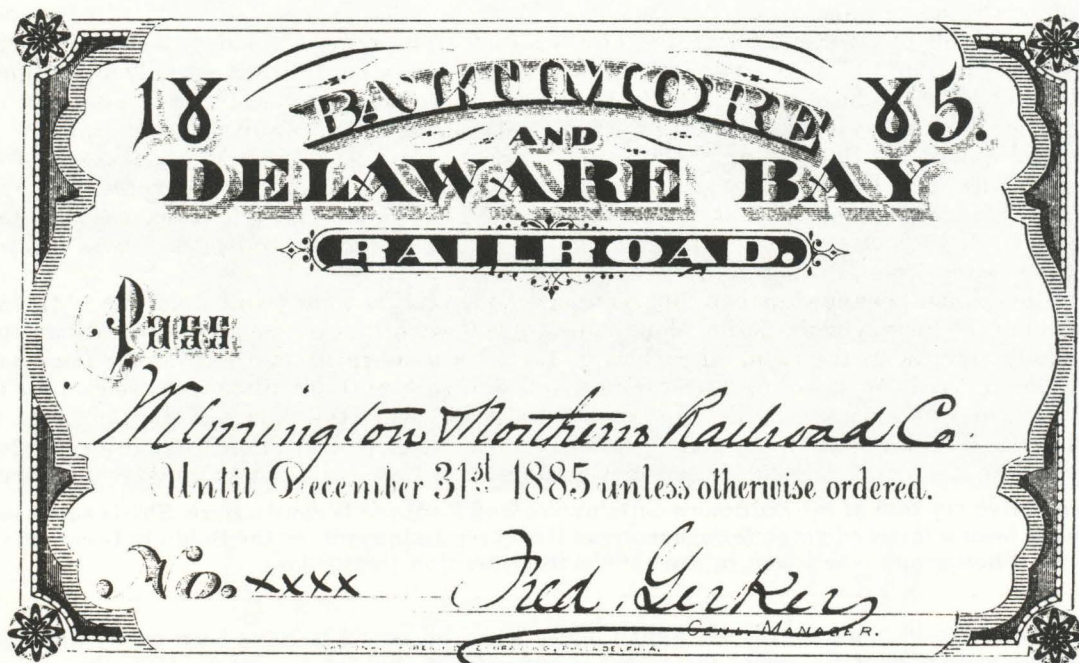 18 BALTIMORE 85.
AND
DELAWARE BAY
RAILROAD.
Pass
Wilmington & Northern Railroad Co.
Until December 31st 1885 unless otherwise ordered.
No. xxxx Fred. Gerker
GENL. MANAGER.
PHILADELPHIA.